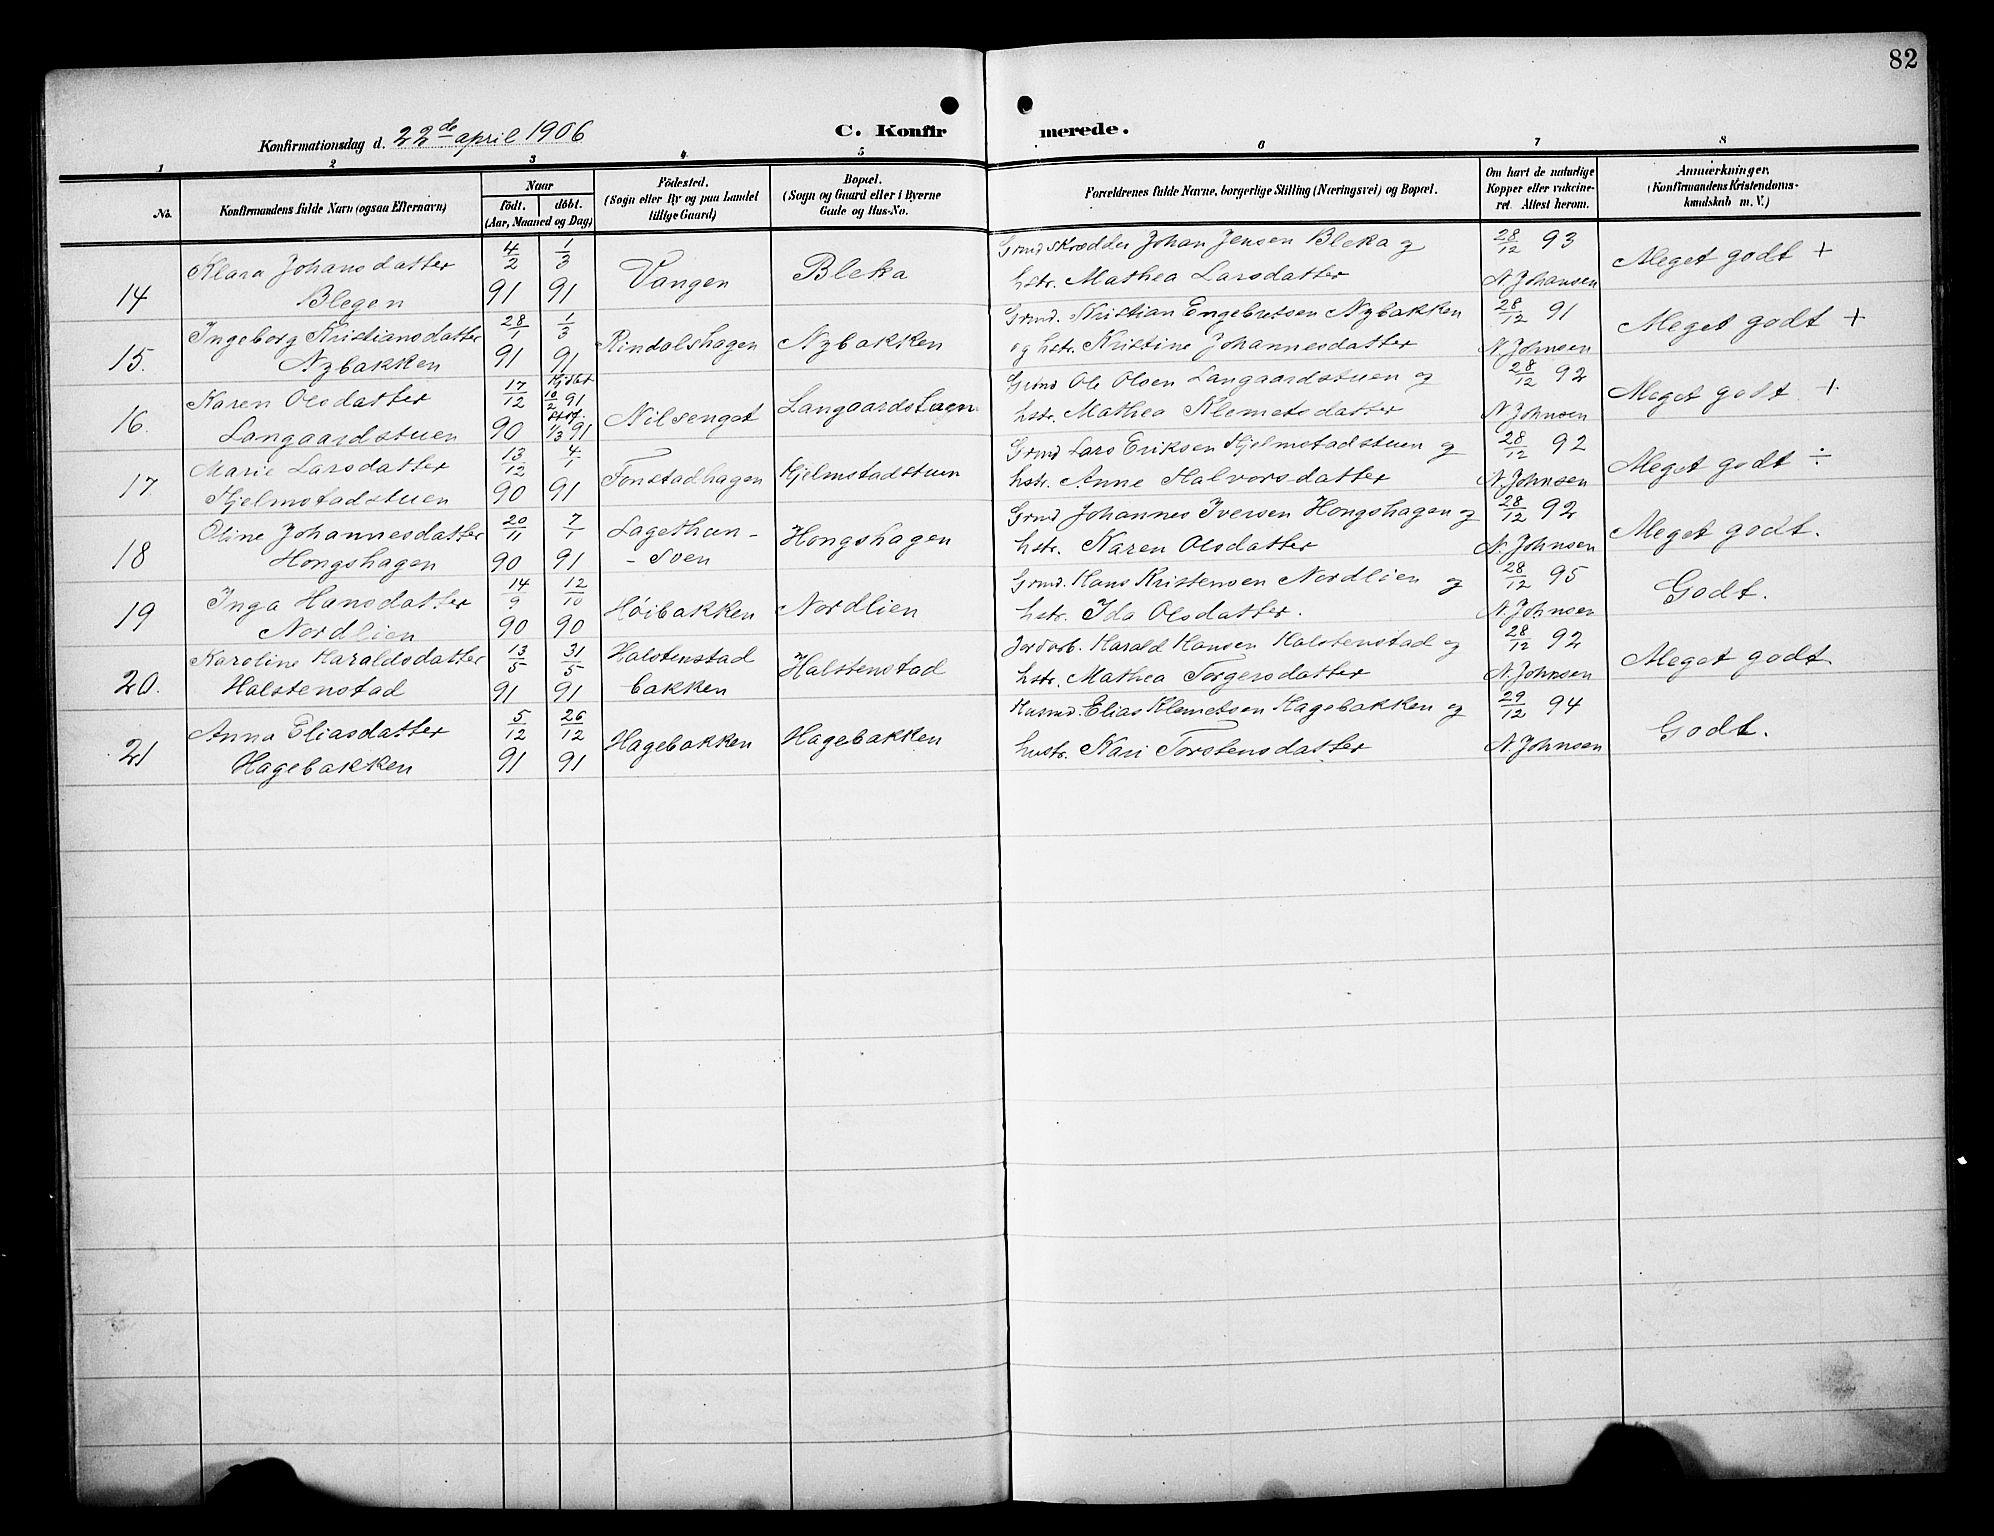 82
Konfirmationsdag d. 22de april 1906
C. Konfirmerede.
1 2 3 4 5 6 7 8
No.
Konfirmandens fulde Navn (ogsaa Efternavn)
Naar
født. døbt.
(Aar, Maaned og Dag)
Fødested.
(Sogn eller By og paa Landet
tillige Gaard)
Bopæl.
(Sogn og Gaard eller i Byerne
Gade og Hus-No.
Forældrenes fulde Navne, borgerlige Stilling (Næringsvei) og Bopæl.
Om havt de naturlige
Kopper eller vakcine-
ret. Attest herom.
Anmærkninger.
(Konfirmandens Kristendoms-
kundskab m. V.)
14 Klara Johansdatter 4/2 1/3 Vangen Bleka Grmd skrædder Johan Jensen Bleka og 28/12 93 Meget godt +
Blegen 91 91 hstr. Mathea Larsdatter N. Johansen
15. Ingeborg Kristiansdatter 28/1 1/3 Rindalshagen Nybakken Grmd. Kristian Engebretsen Nybakken 28/12 91 Meget godt +
Nybakken 91 91 og hstr. Kristine Johannesdatter N. Johnsen
16. Karen Olsdatter 17/12 Hjdbt 10/2 91 Nilsengst Langaardstuen Grmd Ole Olsen Langaardstuen og 28/12 92 Meget godt +
Langaardstuen 90 1/3 91 hstr. Mathea Klemetsdatter N. Johnsen
17 Marie Larsdatter 13/12 4/1 Tonstadhagen Hjelmstadstuen Grmd Lars Eriksen Hjelmstadstuen og 28/12 92 Meget godt ÷
Hjelmstadstuen 90 91 hstr. Anne Halvorsdatter N. Johnsen
18 Oline Johannesdatter 20/11 7/1 Lagethun- Hongshagen Grmd Johannes Iversen Hongshagen og 28/12 92 Meget godt.
Hongshagen 90 91 -sven hstr. Karen Olsdatter N. Johnsen
19 Inga Hansdatter 14/9 12/10 Høibakken Nordlien Grmd. Hans Kristensen Nordlien og 28/12 95 Godt.
Nordlien 90 90 hstr. Ida Olsdatter. N. Johnsen
20. Karoline Haraldsdatter 13/5 31/5 Halstenstad Halstenstad Jordarb. Harald Hansen Halstenstad og 28/12 92 Meget godt
Halstenstad 91 91 bakken hstr. Mathea Torgersdatter N. Johnsen
21 Anna Eliasdatter 5/12 26/12 Hagebakken Hagebakken Husmd. Elias Klemetsen Hagebakken og 29/12 94 Godt.
Hagebakken 91 91 hustr. Kari Torstensdatter N. Johnsen